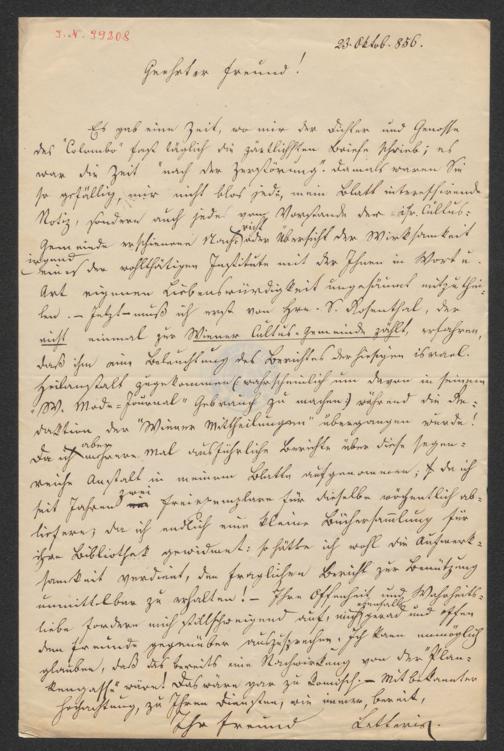 I. N. 39208
23. Oktob. 856.
Geehrter Freund!
Es gab eine Zeit, wo mir der Dichter und Genosse
des "Colombo" fast täglich die zärtlichsten Briefe schrieb; es
war die Zeit "nach der Zerstörung". Damals waren Sie
so gefällig, mir nicht blos jede, mein Blatt interessirende
Notiz, sondern auch jedes vom Vorstande der isr. Cultus-
Gemeinde erschienene Nachricht oder Übersicht der Wirksamkeit
irgend eines der wohlthätigen Institute mit der Ihnen in Wort u.
Art eigenen Liebenswürdigkeit ungesäumt mitzuthei-
len. – Jetzt muß ich erst von Hrn. S. Rosenthal, der
nicht einmal zur Wiener Cultus-Gemeinde zählt, erfahren,
daß ihm eine Beleuchtung des Berichtes der hiesigen israel.
Heilanstalt zugekommen (wahrscheinlich um davon in seinem
"W. Mode-Journal" Gebrauch zu machen) während die Re-
daktion der "Wiener Mittheilungen" übergangen wurde!
Da ich aber mehrere Mal ausführliche Berichte über diese segen-
reiche Anstalt in meinem Blatte aufgenommen; da ich
seit Jahren zwei Freiexemplare für dieselbe wöchentlich ab-
liefere; da ich endlich eine kleine Büchersammlung für
ihre Bibliothek gewidmet: so hätte ich wohl die Aufmerk-
samkeit verdient, den fraglichen Bericht zur Benützung
unmittelbar zu erhalten! – Ihre Offenheit und Wahrheits-
liebe fordern mich stillschweigend auf, mich gerad und offen
dem Freunde gegenüber auszusprechen. Ich kann unmöglich
glauben, daß das bereits eine Nachwirkung von der "Plan-
kengasse" wäre! Das wäre gar zu komisch. – Mit bekannter
Hochachtung, zu Ihren Diensten, wie immer, bereit,
Ihr Freund Letteris.